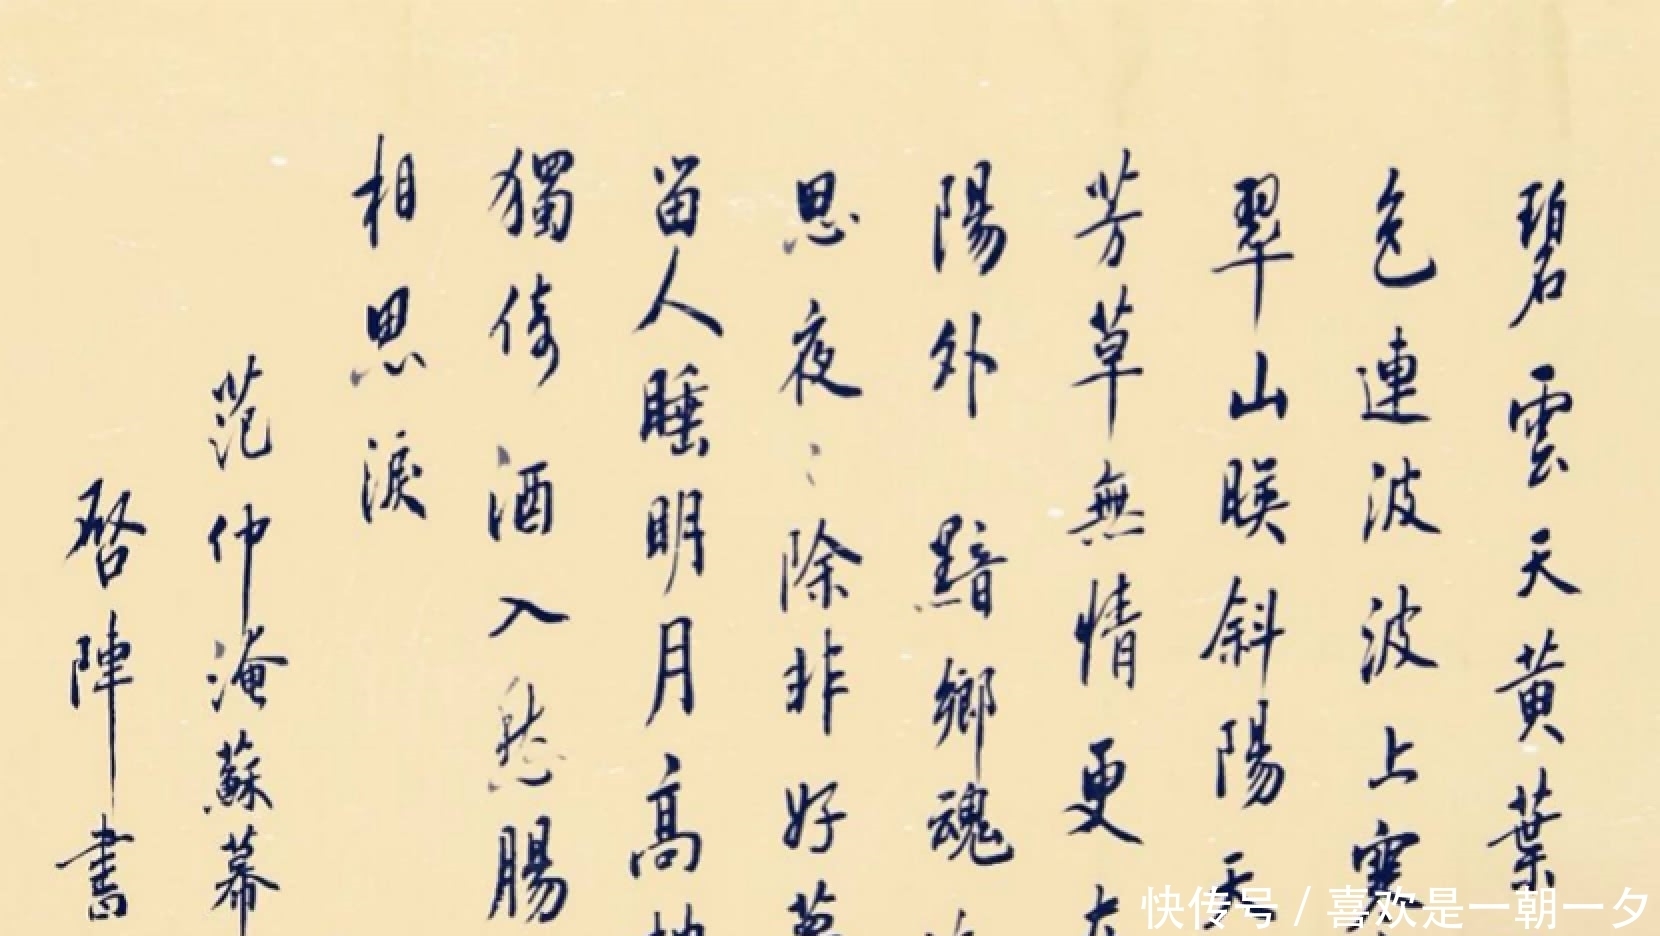 碧雲天黄葉
色連波波上寒
翠山暎斜陽天
芳草無情更在
陽外 黯鄉魂
思夜〻除非好夢
留人睡明月高樓
獨倚 酒入愁腸
相思淚
范仲淹蘇幕
啓陣書
快传号/喜欢是一朝一夕